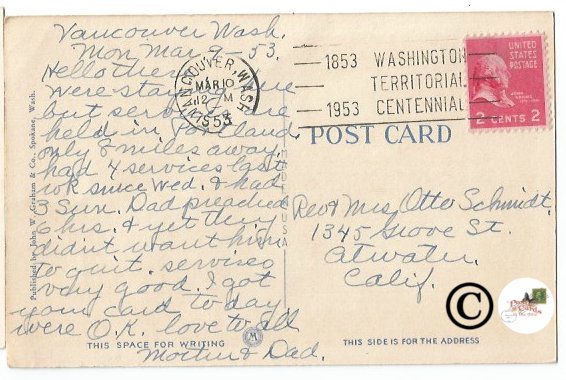 Vancouver Wash.
Mon Mar 9-53.
Hello there
were staying here
but services are
held in Portland
only 8 miles away.
had 4 services last
wk since Wed. & had
3 Sun. Dad preached
6 hrs. & yet they
didn't want him
to quit. services
very good. I got
your card today
were O.K. love to all
Mother & Dad.
VANCOUVER, WASH
MAR 10
12 M
1953
1853 WASHINGTON
TERRITORIAL
1953 CENTENNIAL
UNITED STATES
POSTAGE
2 CENTS 2
POST CARD
Rev & Mrs Otto Schmidt
1345 Grove St.
Atwater,
Calif.
Published by John W. Graham & Co., Spokane, Wash.
THIS SPACE FOR WRITING
THIS SIDE IS FOR THE ADDRESS
©